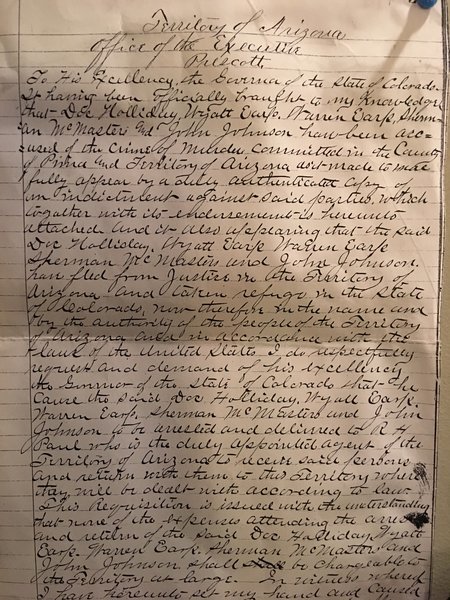 Territory of Arizona
Office of the Executive
Prescott
To His Excellency, the Governor of the State of Colorado.
It having been officially brought to my Knowledge
that Doc Holliday, Wyatt Earp, Warren Earp, Sherm-
an McMasters and John Johnson have been acc-
used of the Crime of Murder, Committed in the County
of Pima and Territory of Arizona as is made to more
fully appear by a duly authenticate Copy of
an indictment against said parties, which
together with its endorsements is hereunto
attached and it also appearing that the said
Doc Holliday, Wyatt Earp Warren Earp
Sherman McMasters and John Johnson
have fled from Justice in the Territory of
Arizona and taken refuge in the State
of Colorado, now therefore in the name and
by the authority of the people of the Territory
of Arizona and in accordance with the
laws of the United States, I do respectfully
request and demand of his excellency
the Governor of the State of Colorado that he
Cause the said Doc Holliday, Wyatt Earp,
Warren Earp, Sherman McMasters and John
Johnson to be arrested and delivered to R H
Paul who is the duly appointed agent of the
Territory of Arizona to receive said persons
and return with them to this Territory where
they will be dealt with according to law
This Requisition is issued with the understanding
that none of the expenses attending the arrest
and return of the said Doc Holliday, Wyatt
Earp, Warren Earp, Sherman McMasters and
John Johnson shall be Chargeable to
the Territory at large. In witness whereof
I have hereunto set my hand and Caused